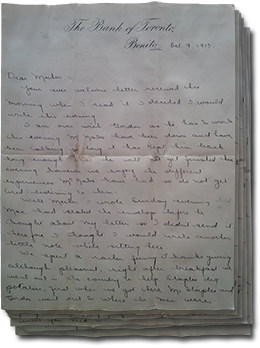 The Bank of Toronto,
Benito, Oct. 9, 1917.
Dear Mother:-
Your ever welcome letter received this
morning when I read it I decided I would
write this evening.
I am over with Gordon as he has to work
this evening Mr have been down and have
been talking so long it has kept him back
long enough he will not get finished this
evening however we enjoy the different
experiences Mr have had we do not get
tired listening to them.
Well Mother I wrote Sunday evening and
Mac had sealed the envelope before he
thought about my letter so I didn't send it
therefore I thought I would write another
little note while sitting here.
We spent a rather funny Thanksgiving
although pleasant, right after breakfast we
went out in the country to help Staples dig
potatoes, just when we got there Mr Staples and
Gordon went out to where the men were